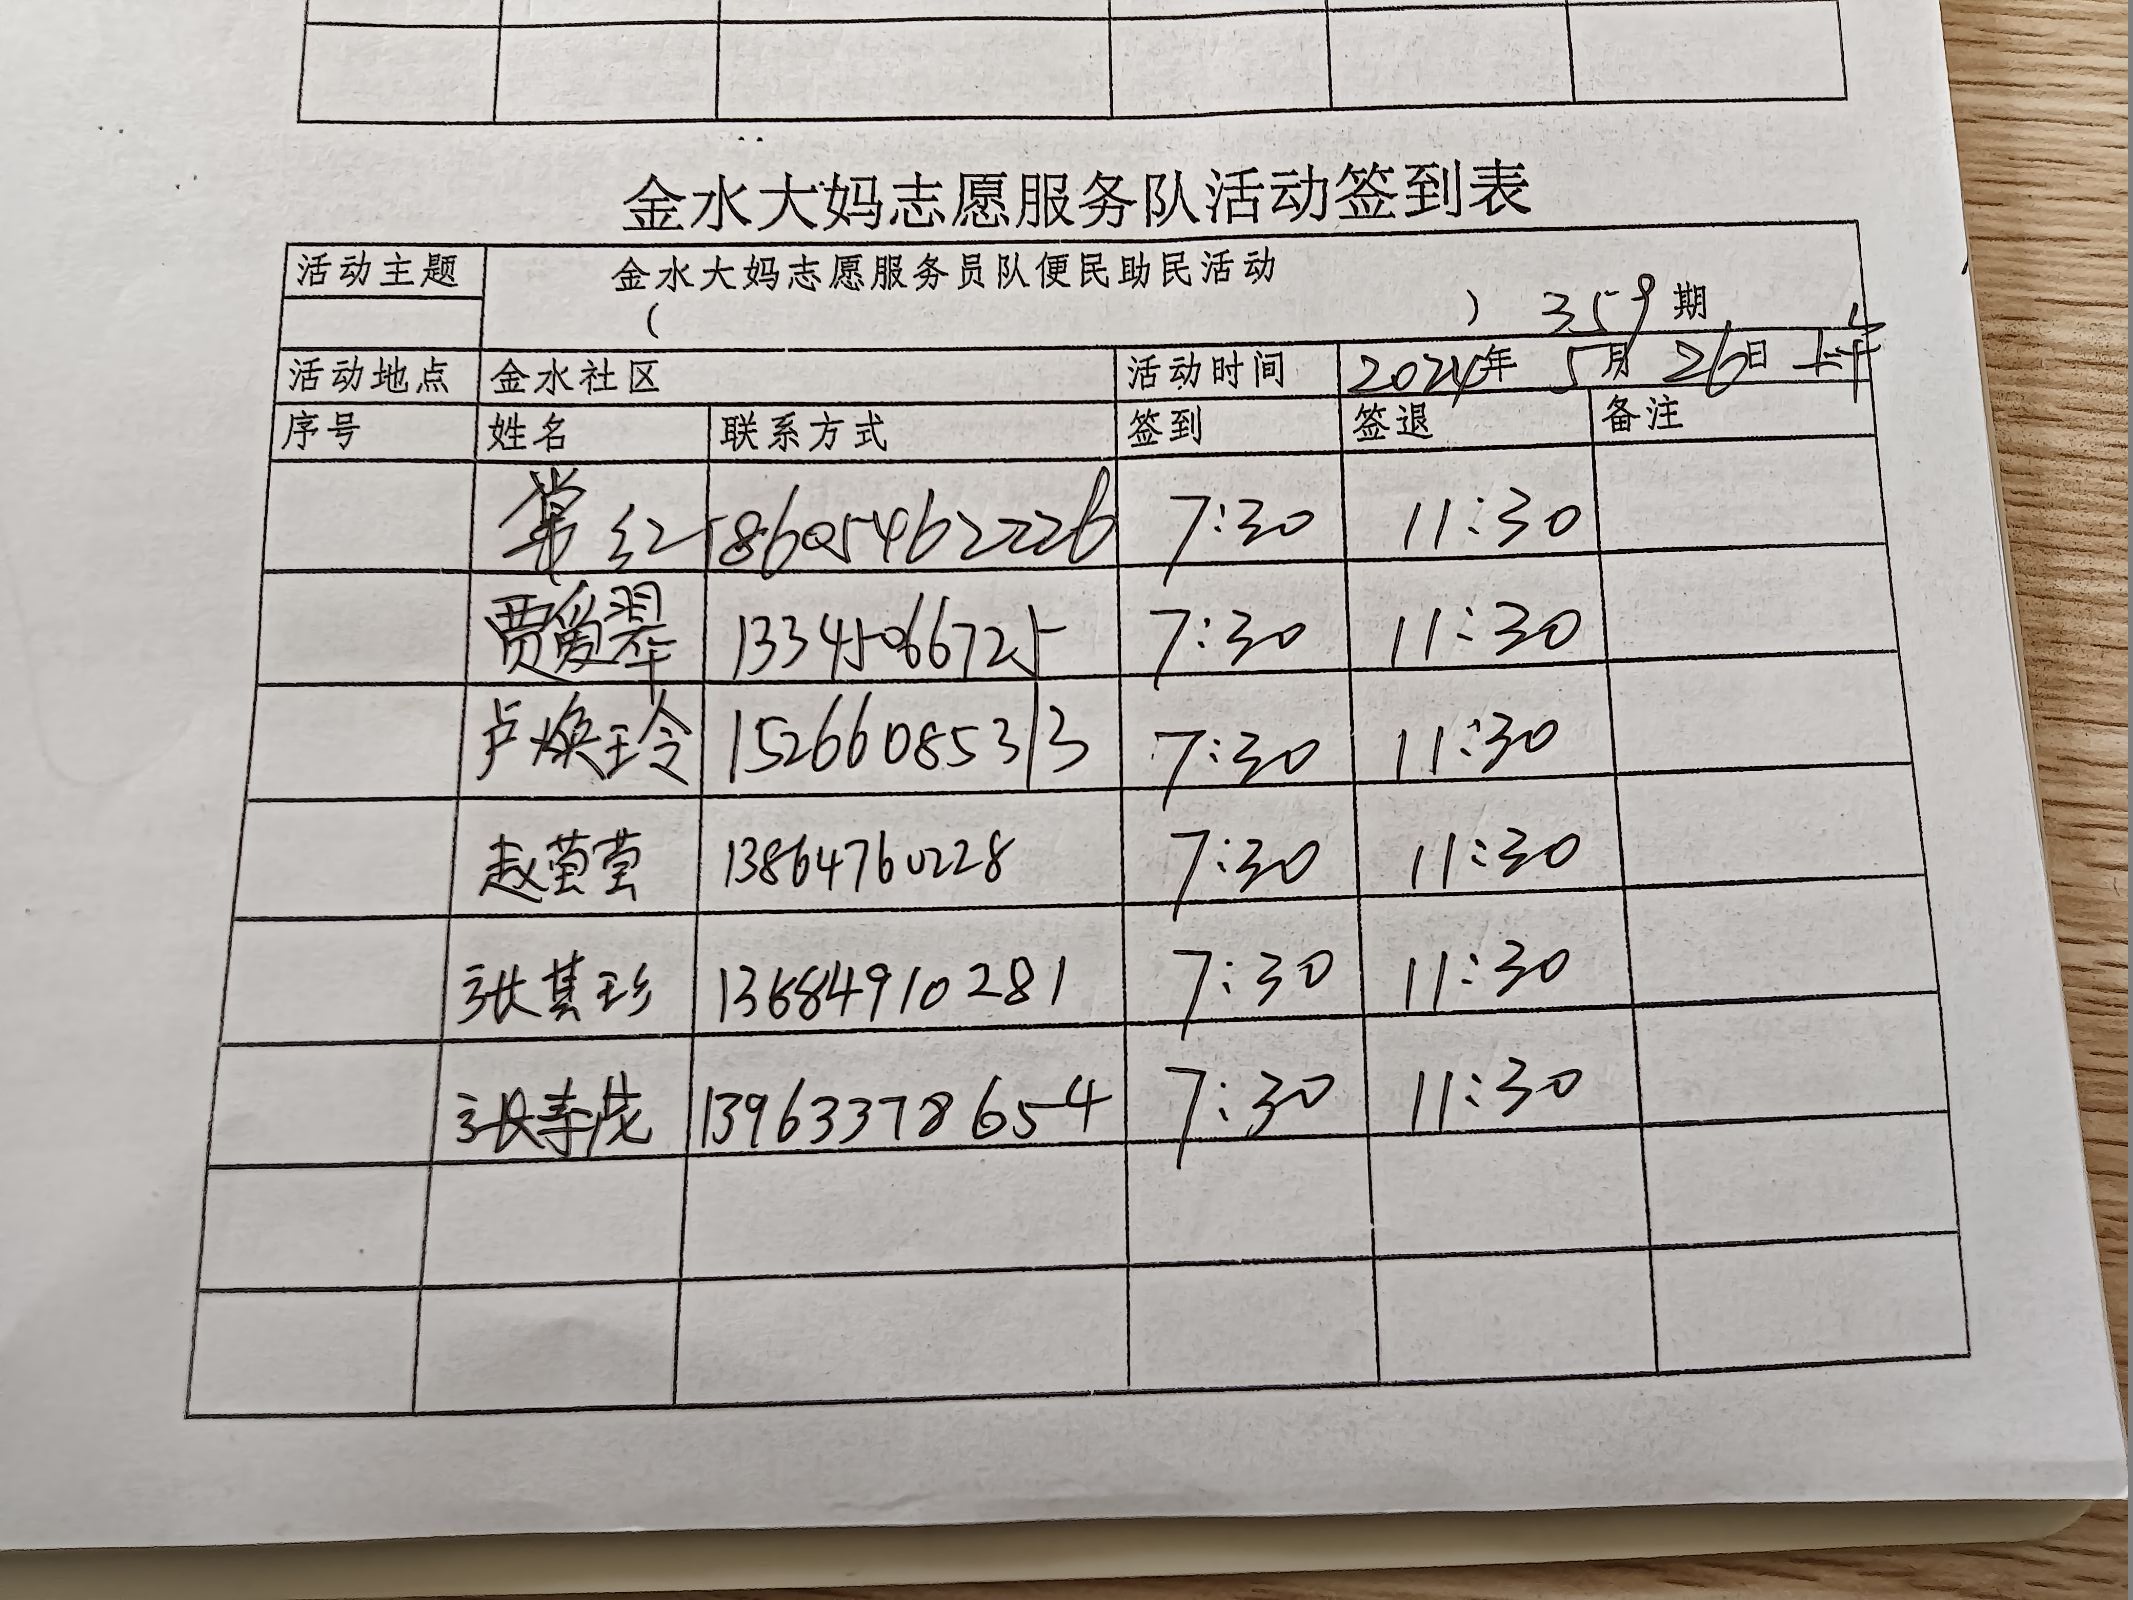 金水大妈志愿服务队活动签到表
活动主题 金水大妈志愿服务员队便民助民活动
( ) 359期
活动地点 金水社区 活动时间 2024年 5月 26日 上午
序号 姓名 联系方式 签到 签退 备注
常红 18605462226 7:30 11:30
贾爱翠 13345066725 7:30 11:30
卢焕玲 15266085313 7:30 11:30
赵萤萤 13864760228 7:30 11:30
张其珍 13684910281 7:30 11:30
张孝茂 13963378654 7:30 11:30